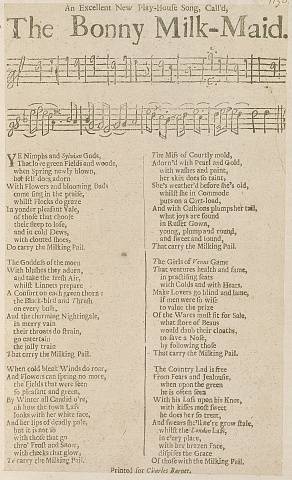 An Excellent New Play-House Song, Call'd,
The Bonny Milk-Maid.
YE Nimphs and Sylvian Gods,
That love green Fields and woods,
when Spring newly blown,
her self does adorn
With Flowers and blooming Buds
come sing in the praise,
whilst Flocks do graze
In yonder pleasant Vale,
of those that choose
their sleep to lose,
and in cold Dews,
with clouted shoes,
Do carry the Milking Pail.
The Goddess of the morn
With blushes they adorn,
and take the fresh Air,
whilst Linnets prepare
A Consort on each green thorn:
the Black-bird and Thrush
on every bush,
And the charming Nightingale,
in merry vain
their throats do strain,
to entertain
the jolly train
That carry the Milking Pail.
When cold bleak Winds do roar,
And Flowers can spring no more,
the Fields that were seen
so pleasant and green,
By Winter all Candid o're,
ah how the town Lass
looks with her white face,
And her lips of deadly pale,
but it is not so
with those that go
thro' Frost and Snow,
with cheeks that glow,
To carry the Milking Pail.
The Miss of Courtly mold,
Adorn'd with Pearl and Gold,
with washes and paint,
her skin does so taint,
She's weather'd before she's old,
whilst she in Commode
puts on a Cart-load,
And with Cushions plumps her tail,
what joys are found
in Russet Gown,
young, plump and round,
and sweet and sound,
That carry the Milking Pail.
The Girls of Venus Game
That ventures health and fame,
in practising feats
with Colds and with Heats,
Make Lovers go blind and lame,
if men were so wise
to value the prize
Of the Wares most fit for Sale,
what store of Beaus
would daub their cloaths,
to save a Nose,
by following those
That carry the Milking Pail.
The Country Lad is free
From Fears and Jealousie,
when upon the green
he is often seen
With his Lass upon his Knee,
with kisses most sweet
he does her so treat,
And swears she'll ne're grow stale,
whilst the London Lass,
in e'ery place,
with her brazen face,
despises the Grace
Of those with the Milking Pail.
Printed for Charles Barnet.